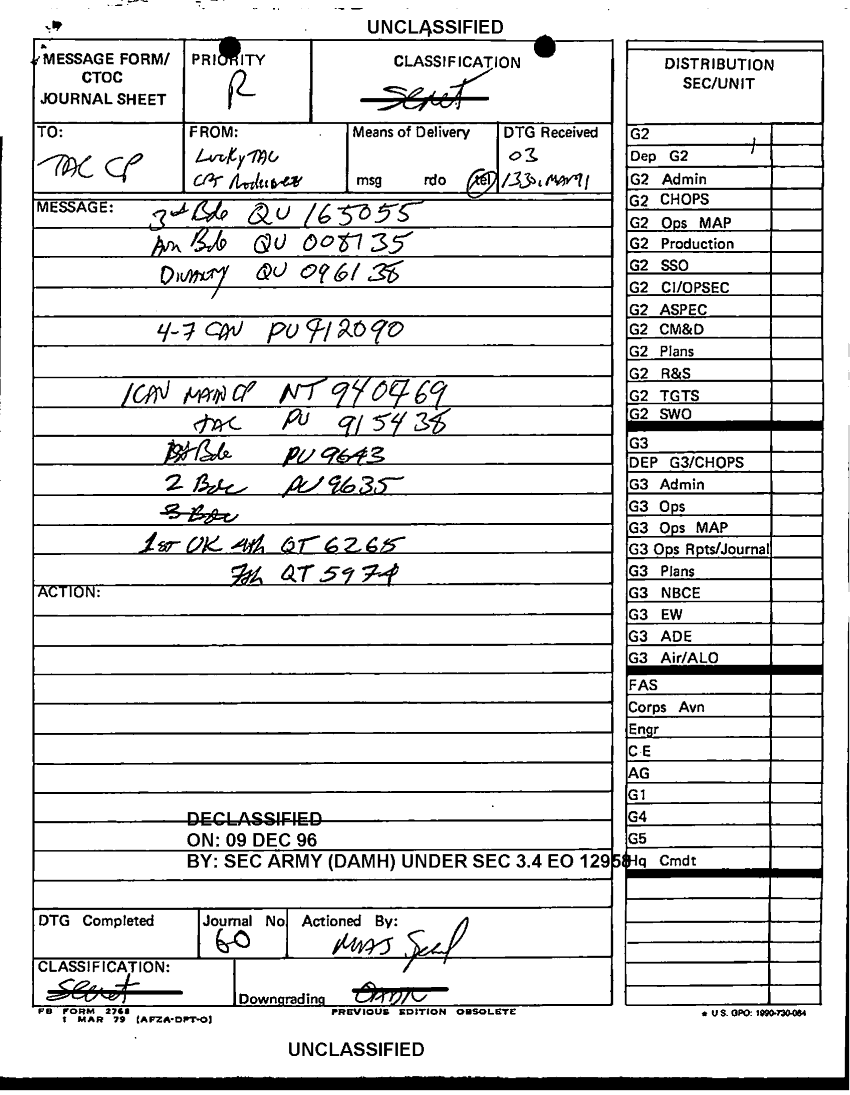 UNCLASSIFIED
MESSAGE FORM/
CTOC
JOURNAL SHEET
PRIORITY
R
CLASSIFICATION
Secret
TO:
TAC CP
FROM:
Lucky TAC
Means of Delivery
msg rdo tel
DTG Received
03
MESSAGE:
3rd Bde QU 165055
Avn Bde QU 008135
Divarty QU 096138
4-7 CAV PU 912090
1 CAV MAIN CP NT 940769
TAC PU 915438
1st Bde PU 9643
2 Bde PU 9635
3 Bde
1st UK 4th QT 6265
7th QT 5974
ACTION:
DECLASSIFIED
ON: 09 DEC 96
BY: SEC ARMY (DAMH) UNDER SEC 3.4 EO 12958
DTG Completed
Journal No
60
Actioned By:
CLASSIFICATION:
Secret
Downgrading
OADR
FB FORM 2768
1 MAR 79 (AFZA-DPT-O)
PREVIOUS EDITION OBSOLETE
DISTRIBUTION
SEC/UNIT
G2
Dep G2
G2 Admin
G2 CHOPS
G2 Ops MAP
G2 Production
G2 SSO
G2 CI/OPSEC
G2 ASPEC
G2 CM&D
G2 Plans
G2 R&S
G2 TGTS
G2 SWO
G3
DEP G3/CHOPS
G3 Admin
G3 Ops
G3 Ops MAP
G3 Ops Rpts/Journal
G3 Plans
G3 NBCE
G3 EW
G3 ADE
G3 Air/ALO
FAS
Corps Avn
Engr
CE
AG
G1
G4
G5
Hq Cmdt
* U.S. GPO: 1990-730-084
UNCLASSIFIED